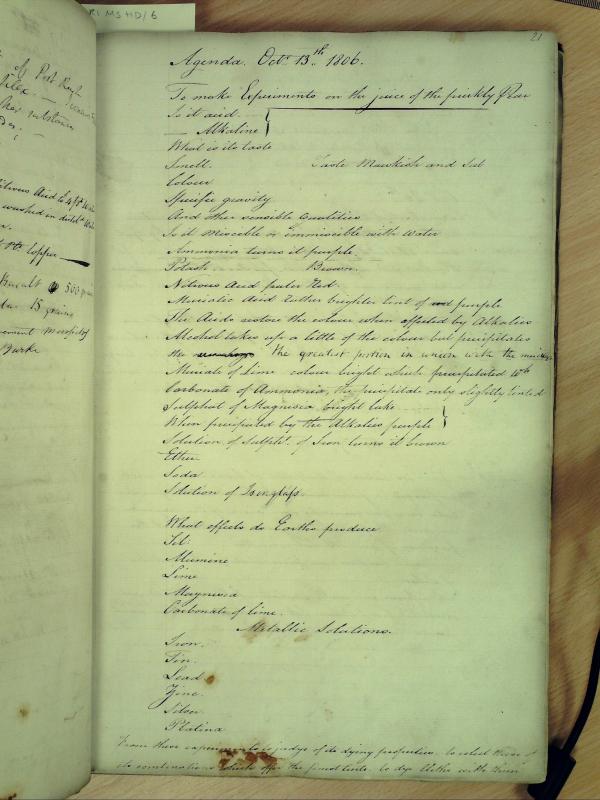 RI MS HD/6
21
of Port
Silex. —
Acid to
washed in distd.
copper
Basalt 500
15 grains
Burke
Agenda. Octr. 13th. 1806.
To make Experiments on the juice of the prickly Pear
Is it acid
— Alkaline
What is its taste
Smell. Taste Mawkish and Salt
Colour
Specific gravity
And other sensible qualities
Is it Miscible or immiscible with water
Ammonia turns it purple.
Potash Brown.
Nitrous Acid paler Red.
Muriatic Acid rather brighter tint of purple
The Acids restore the colour when affected by Alkalies
Alcohol takes up a little of the colour but precipitates
the the greatest portion in union with the
Muriate of Lime colour bright which precipitated with
Carbonate of Ammonia, the precipitate only slightly tinted
Sulphat of Magnesia bright lake
When precipitated by the Alkalies purple
Solution of Sulpht. of Iron turns it brown
Ether
Soda
Solution of Isinglass.
What effects do Earths produce
Sil:
Alumine
Lime
Magnesia
Carbonate of lime.
Metallic Solutions.
Iron.
Tin.
Lead
Zinc.
Silver
Platina
From these experiments to judge of its dying properties. to select those of
its combinations which offer the finest tints. to dye cloths with them